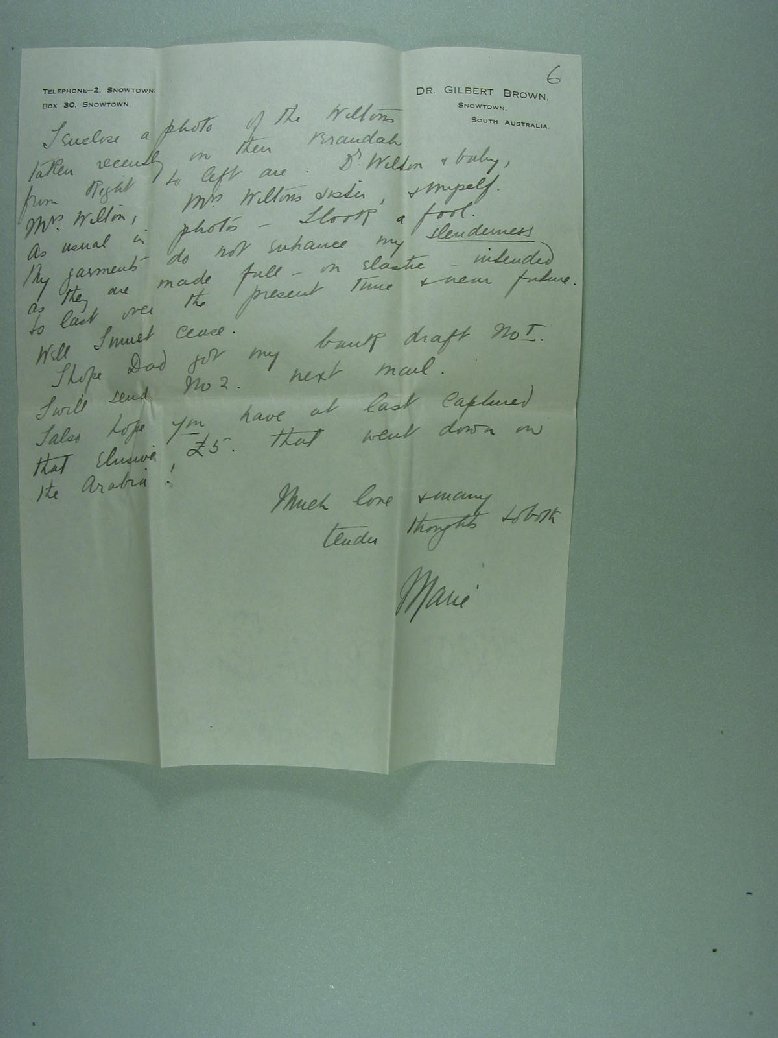 6
TELEPHONE—2, SNOWTOWN.
BOX 30, SNOWTOWN.
DR. GILBERT BROWN,
SNOWTOWN,
SOUTH AUSTRALIA.
I enclose a photo of the Wiltons
taken recently on their Verandah
from Right to left are. Dr Wilton & baby,
Mrs Wilton, Mrs Wiltons sister, & myself.
As usual in photos – I look a fool.
My garments do not enhance my slenderness
as they are made full – on elastic – intended
to last over the present time & near future.
Well I must cease.
I hope Dad got my bank draft No I.
I will send No 2. next mail.
I also hope you have at last captured
that elusive £5. that went down on
the Arabia!
Much love & many
tender thoughts to both
Marie